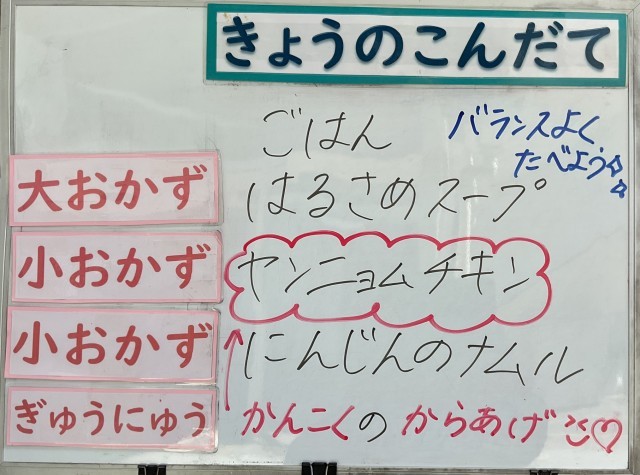 きょうのこんだて
ごはん
バランスよく
たべよう
大おかず はるさめスープ
小おかず ヤンニョムチキン
小おかず にんじんのナムル
ぎゅうにゅう かんこくのからあげ